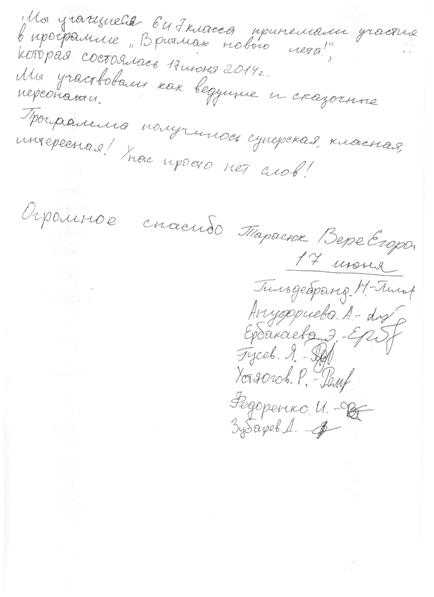 Мы учащиеся 6 и 7 класса принемали участия
в программе „В ритмах нового лета!",
которая состоялась 17 июня 2014 г.
Мы участвовали как ведущие и сказочные
персонажи.
Программа получилось суперская, класная,
интересная! У нас просто нет слов!
Огромное спасибо Тарасюк Вере Егоро
17 июня
Гильдебранд. Н. -
Ануфриева. А. -
Ербакаева. Э. - Ерб
Гусев. Я. -
Устюгов. Р. -
Федоренко. И. -
Зубарев. Д. -